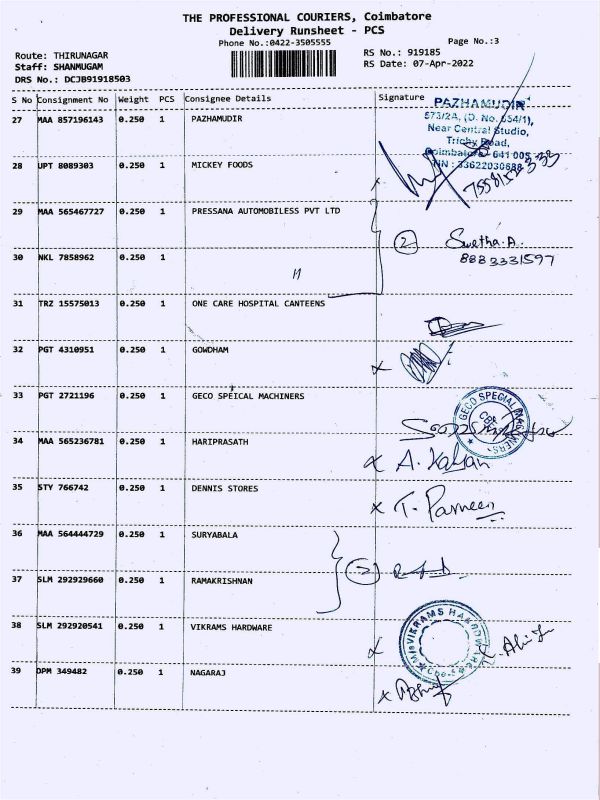 THE PROFESSIONAL COURIERS, Coimbatore
Delivery Runsheet - PCS
Phone No.:0422-3505555
Page No.:3
Route: THIRUNAGAR
RS No.: 919185
Staff: SHANMUGAM
RS Date: 07-Apr-2022
DRS No.: DCJB91918503
S No Consignment No Weight PCS Consignee Details Signature
27 MAA 857196143 0.250 1 PAZHAMUDIR
PAZHAMUDIR
573/2A, (D. No. 554/1),
Near Central Studio,
Trichy Road,
Coimbatore - 641 005
28 UPT 8089303 0.250 1 MICKEY FOODS
29 MAA 565467727 0.250 1 PRESSANA AUTOMOBILESS PVT LTD
2 Swetha.A
8883331597
30 NKL 7858962 0.250 1
11
31 TRZ 15575013 0.250 1 ONE CARE HOSPITAL CANTEENS
32 PGT 4310951 0.250 1 GOWDHAM
33 PGT 2721196 0.250 1 GECO SPEICAL MACHINERS
GECO SPECIAL MACHINERS
CBE
34 MAA 565236781 0.250 1 HARIPRASATH
A. Kalyan
35 STY 766742 0.250 1 DENNIS STORES
T. Parneen
36 MAA 564444729 0.250 1 SURYABALA
2
37 SLM 292929660 0.250 1 RAMAKRISHNAN
38 SLM 292920541 0.250 1 VIKRAMS HARDWARE
M/s VIKRAMS HARDWARE
39 DPM 349482 0.250 1 NAGARAJ